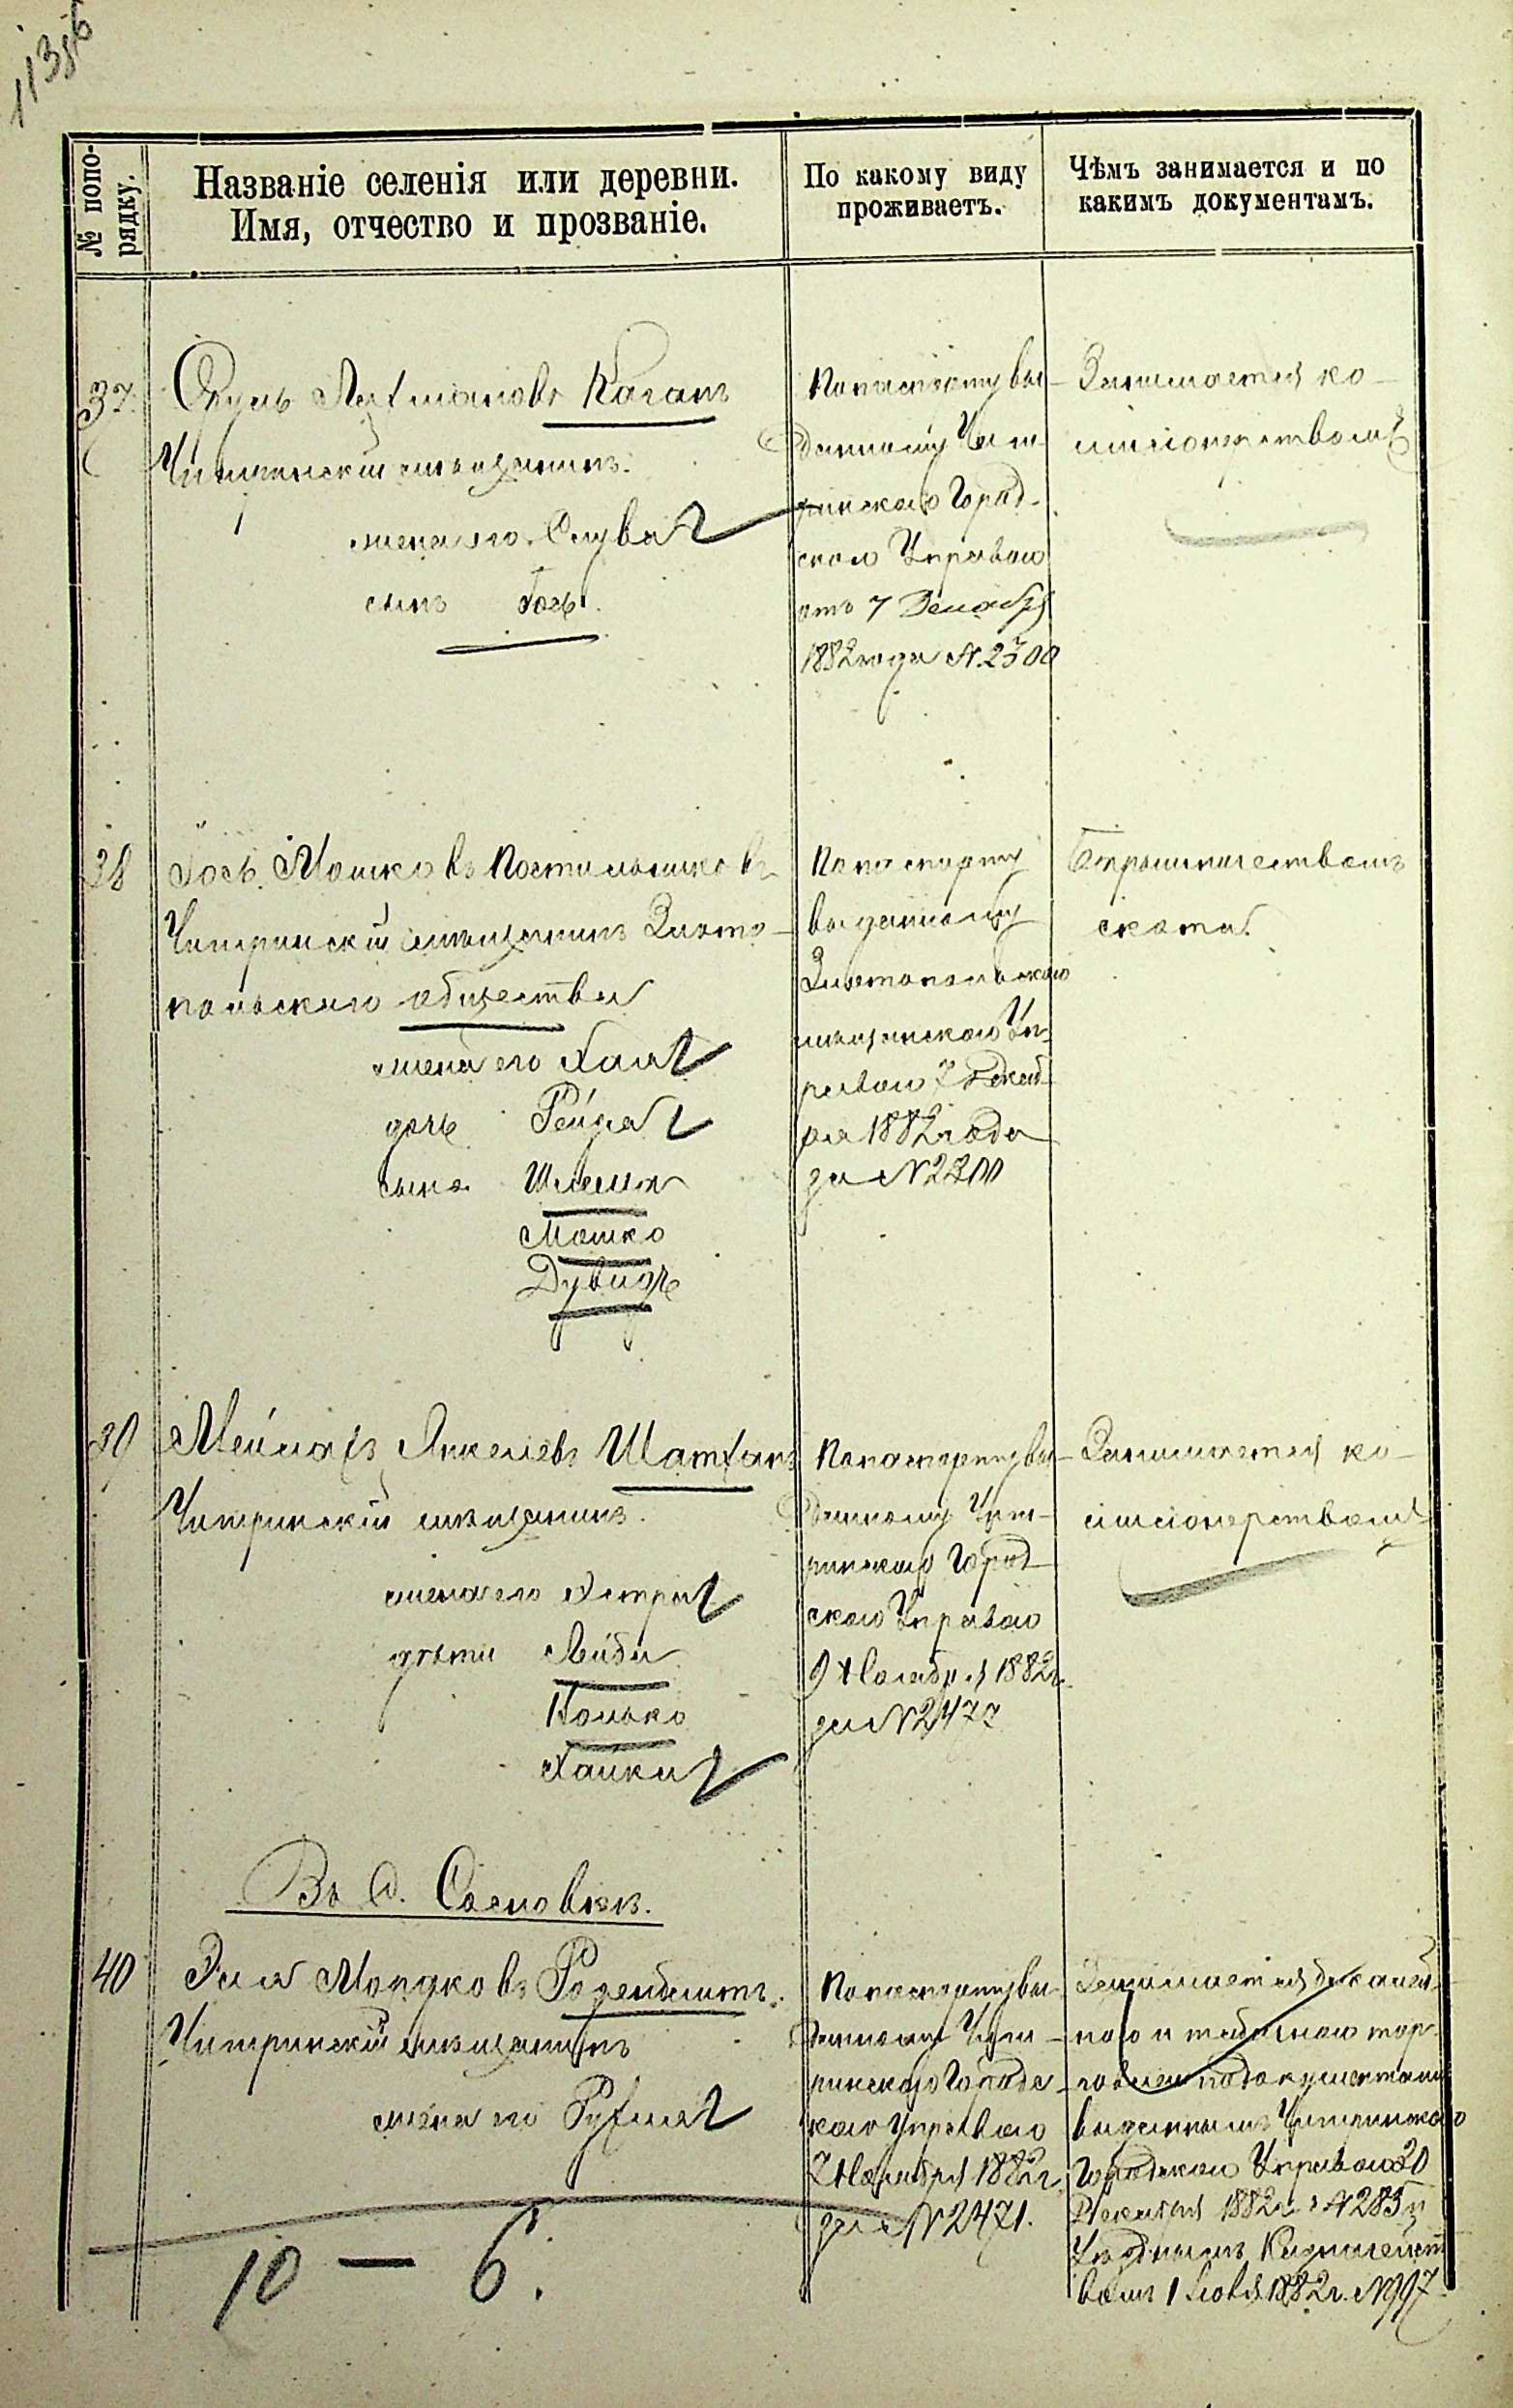 113об
№ попо-
рядку.
Названіе селенія или деревни.
Имя, отчество и прозваніе.
По какому виду
проживаетъ.
Чѣмъ занимается и по
какимъ документамъ.
37.
Лахмановъ Каганъ
Чигиринскій мѣщанинъ.
жена его Слува
сынъ Іось.
По паспорту вы-
данному Чиги-
ринскою Город-
скою Управою
отъ 7 Декабря
1882 года №
Занимается ко-
мисіонерствомъ
38
Іось Мошковъ Постильниковъ
Чигиринскій мѣщанинъ Злато-
польскаго общества
жена его Хая
дочь Рейза
сына Шлема
Мошко
Дувидъ
По паспорту
выданному
Златопольскою
мѣщанскою Уп-
равою 7 Декаб-
ря 1882 года
за №
скота.
39
Янкелевъ Шатханъ
Чигиринскій мѣщанинъ.
жена его Эстра
дѣти Лейба
Волько
Хайка
По паспорту вы-
данному Чиги-
ринскою Город-
скою Управою
9 Ноября 1882 г.
за № 2477
Занимается ко-
мисіонерствомъ
Въ д. Сосновкѣ.
40
Эля Мордковъ Розенблитъ.
Чигиринскій мѣщанинъ
жена его Рухля
По паспорту вы-
данному Чиги-
ринскою Городс-
кою Управою
7 Ноября 1882 г.
за № 2471.
Занимается бакалей-
ною и табачною тор-
говлею по документамъ
выданнымъ Чигиринскою
Городскою Управою 20
Декабря 1882 г. № 285 и
Уѣзднымъ Казначейст-
вомъ 1882 г. № 997.
10 — 6.